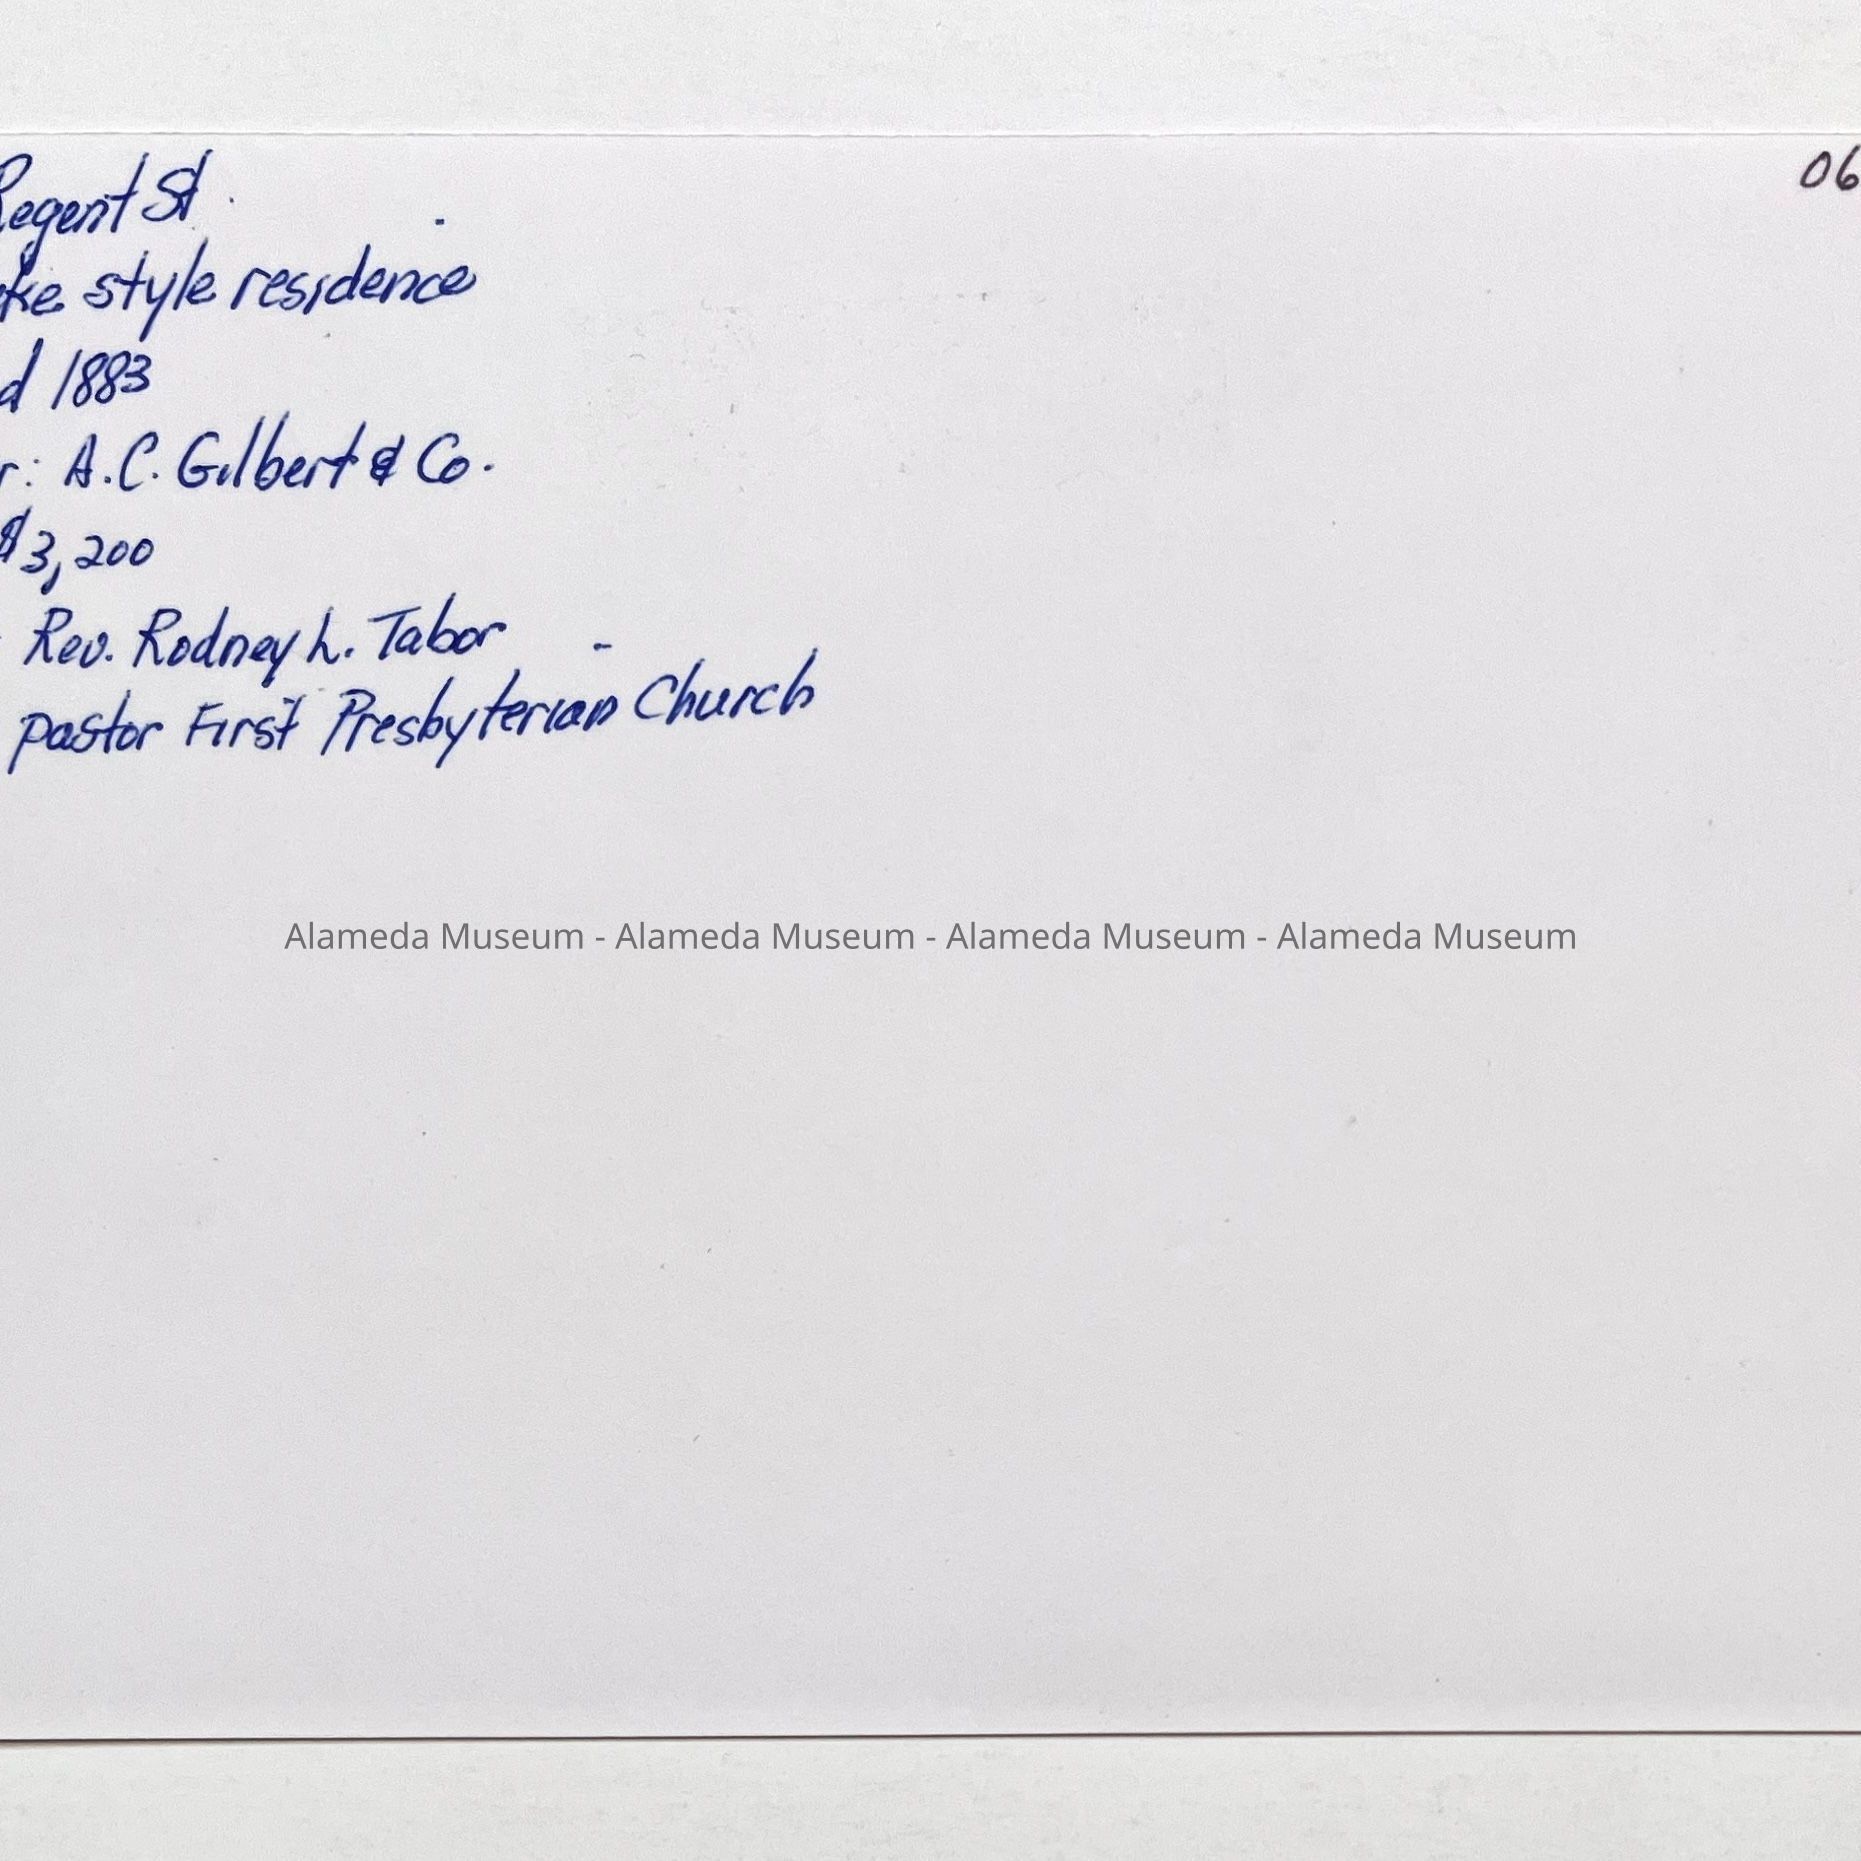 Regent St.
06
ke style residence
d 1883
r: A.C. Gilbert & Co.
$3,200
Rev. Rodney L. Tabor
pastor First Presbyterian Church
Alameda Museum - Alameda Museum - Alameda Museum - Alameda Museum